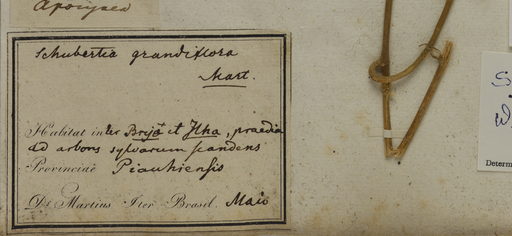 Apocynea
Schubertia grandiflora
Mart.
Habitat inter Brejo et Ilha, praedia
ad arbores sylvarum scandens
Provinciae Piauhiensis
Dr. Martius Iter Brasil. Maio
S
Determ